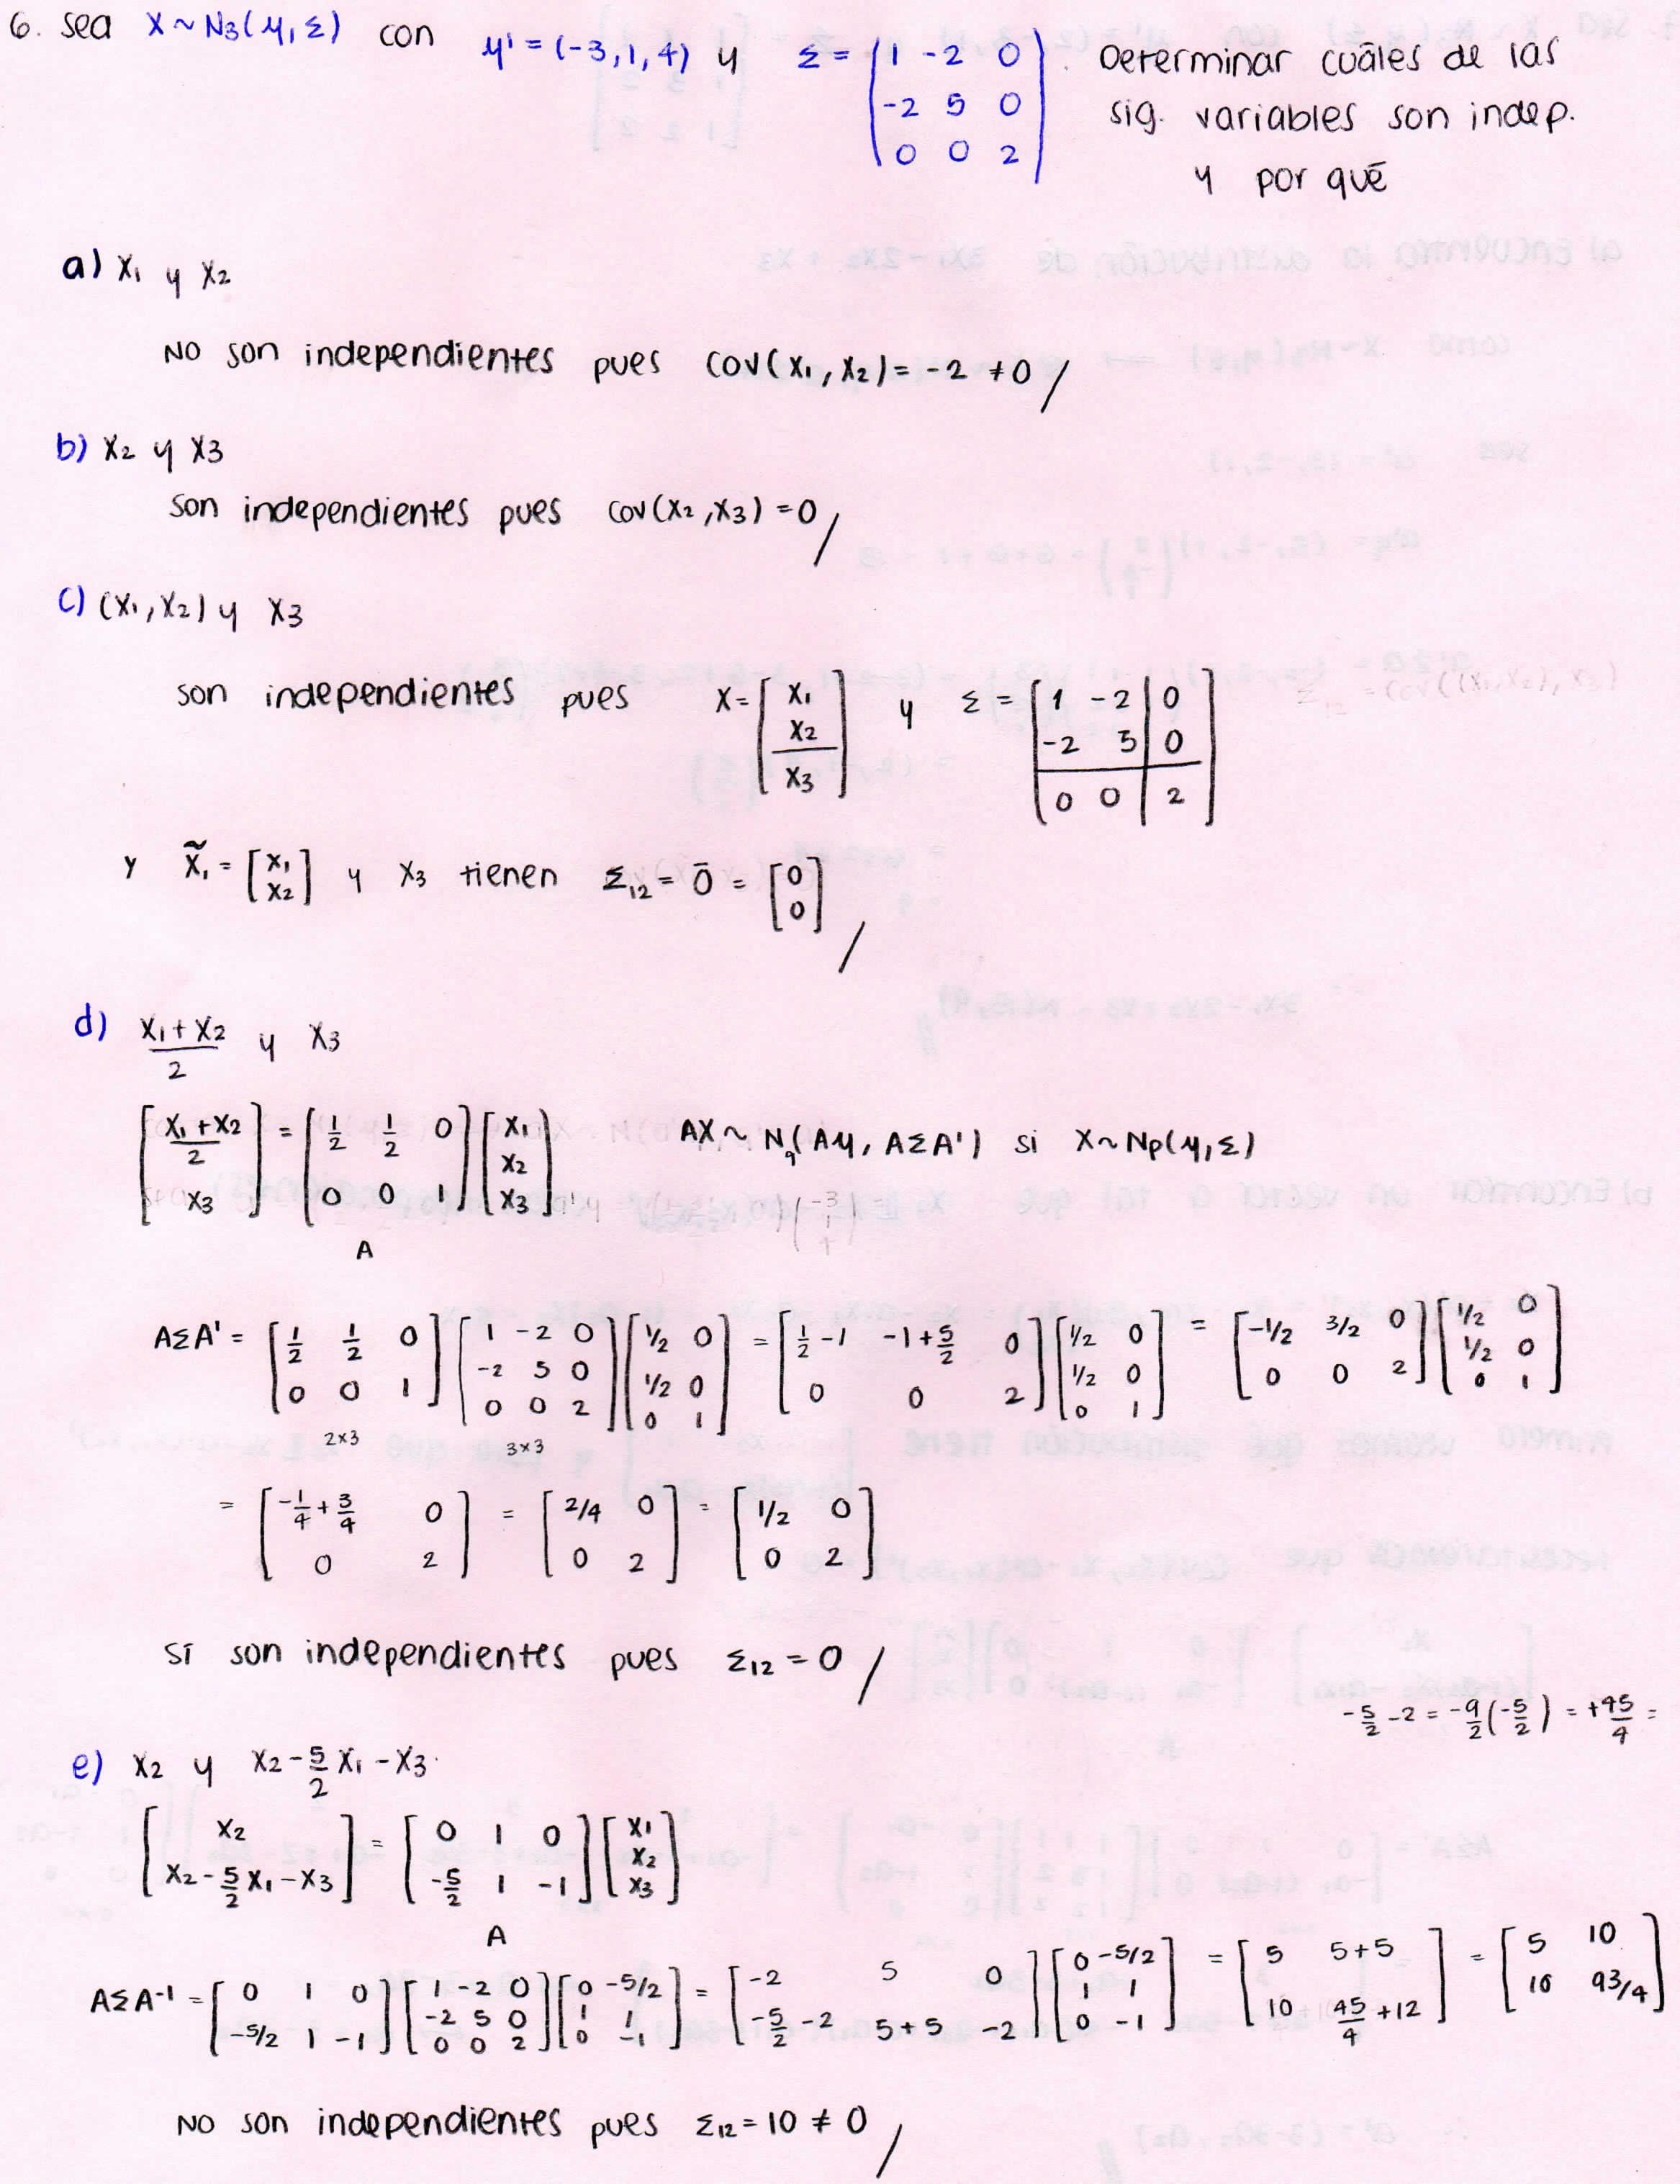 6. sea X ~ N3(μ, Σ) con μ' = (-3, 1, 4) y Σ = (1 -2 0 Determinar cuáles de las
-2 5 0 sig. variables son indep.
0 0 2) y por qué
a) X1 y X2
No son independientes pues Cov(X1, X2) = -2 ≠ 0 /
b) X2 y X3
son independientes pues cov(X2, X3) = 0 /
c) (X1, X2) y X3
son independientes pues X = [X1 X2 X3] y Σ = [1 -2 | 0
-2 5 | 0
0 0 | 2]
y X̃1 = [X1 X2] y X3 tienen Σ12 = 0̄ = [0 0] /
d) (X1 + X2)/2 y X3
[(X1 + X2)/2 X3] = [1/2 1/2 0 0 0 1] [X1 X2 X3] AX ~ Nq(Aμ, AΣA') si X ~ Np(μ, Σ)
A
AΣA' = [1/2 1/2 0 0 0 1] [1 -2 0 -2 5 0 0 0 2] [1/2 0 1/2 0 0 1] = [1/2 - 1 -1 + 5/2 0 0 0 2] [1/2 0 1/2 0 0 1] = [-1/2 3/2 0 0 0 2] [1/2 0 1/2 0 0 1]
2x3 3x3
= [-1/4 + 3/4 0 0 2] = [2/4 0 0 2] = [1/2 0 0 2]
Sí son independientes pues Σ12 = 0 /
-5/2 - 2 = -9/2 (-5/2) = +45/4 =
e) X2 y X2 - 5/2 X1 - X3
[X2 X2 - 5/2 X1 - X3] = [0 1 0 -5/2 1 -1] [X1 X2 X3]
A
AΣA-1 = [0 1 0 -5/2 1 -1] [1 -2 0 -2 5 0 0 0 2] [0 -5/2 1 1 0 -1] = [-2 5 0 -5/2 - 2 5+5 -2] [0 -5/2 1 1 0 -1] = [5 5+5 10 45/4 + 12] = [5 10 10 93/4]
No son independientes pues Σ12 = 10 ≠ 0 /